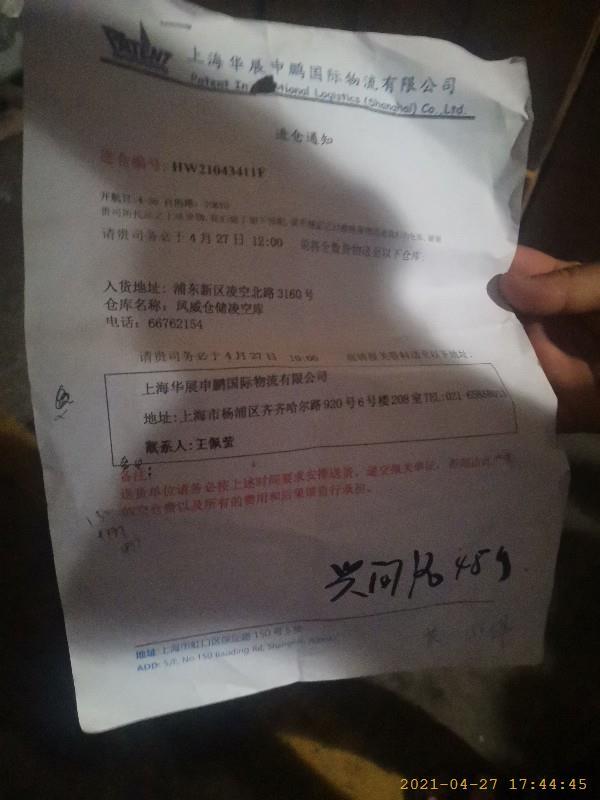 PATENT
上海华展申鹏国际物流有限公司
Patent In ational Logistics (Shanghai) Co., Ltd.
进仓通知
进仓编号: HW21043411F
开航日: 4-30 目的港: TOKYO
请贵司务必于 4 月 27 日 12:00 前将全数货物送至以下仓库:
入货地址: 浦东新区凌空北路3160号
仓库名称: 凤威仓储凌空库
电话: 66762154
请贵司务必于 4 月 27 日 10:00 前将报关资料送至以下地址:
上海华展申鹏国际物流有限公司
地址:上海市杨浦区齐齐哈尔路 920 号 6 号楼 208 室 TEL:021-
联系人:王佩莹
备注:
送货单位请务必按上述时间要求安排送货、递交报关单证,否则由此产生
的空仓费以及所有的费用和后果请自行承担。
地址:上海市虹口区保定路 150 号 5 楼
ADD: 5/F, No.150 Baoding Rd, Shanghai,
2021-04-27 17:44:45